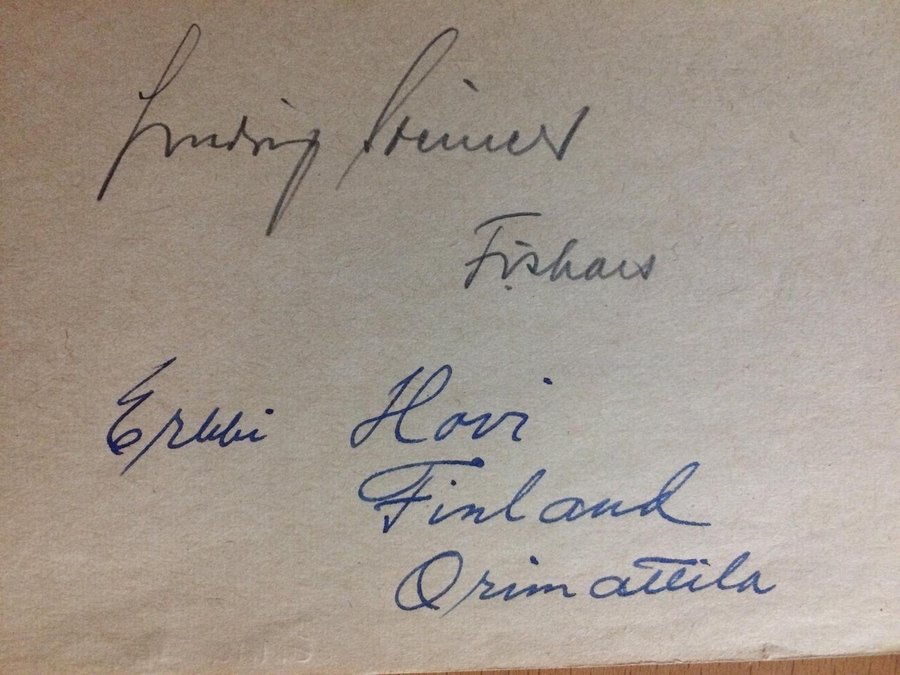 Ludwig Steiner
Fiskars
Erkki Hovi
Finland
Orimattila